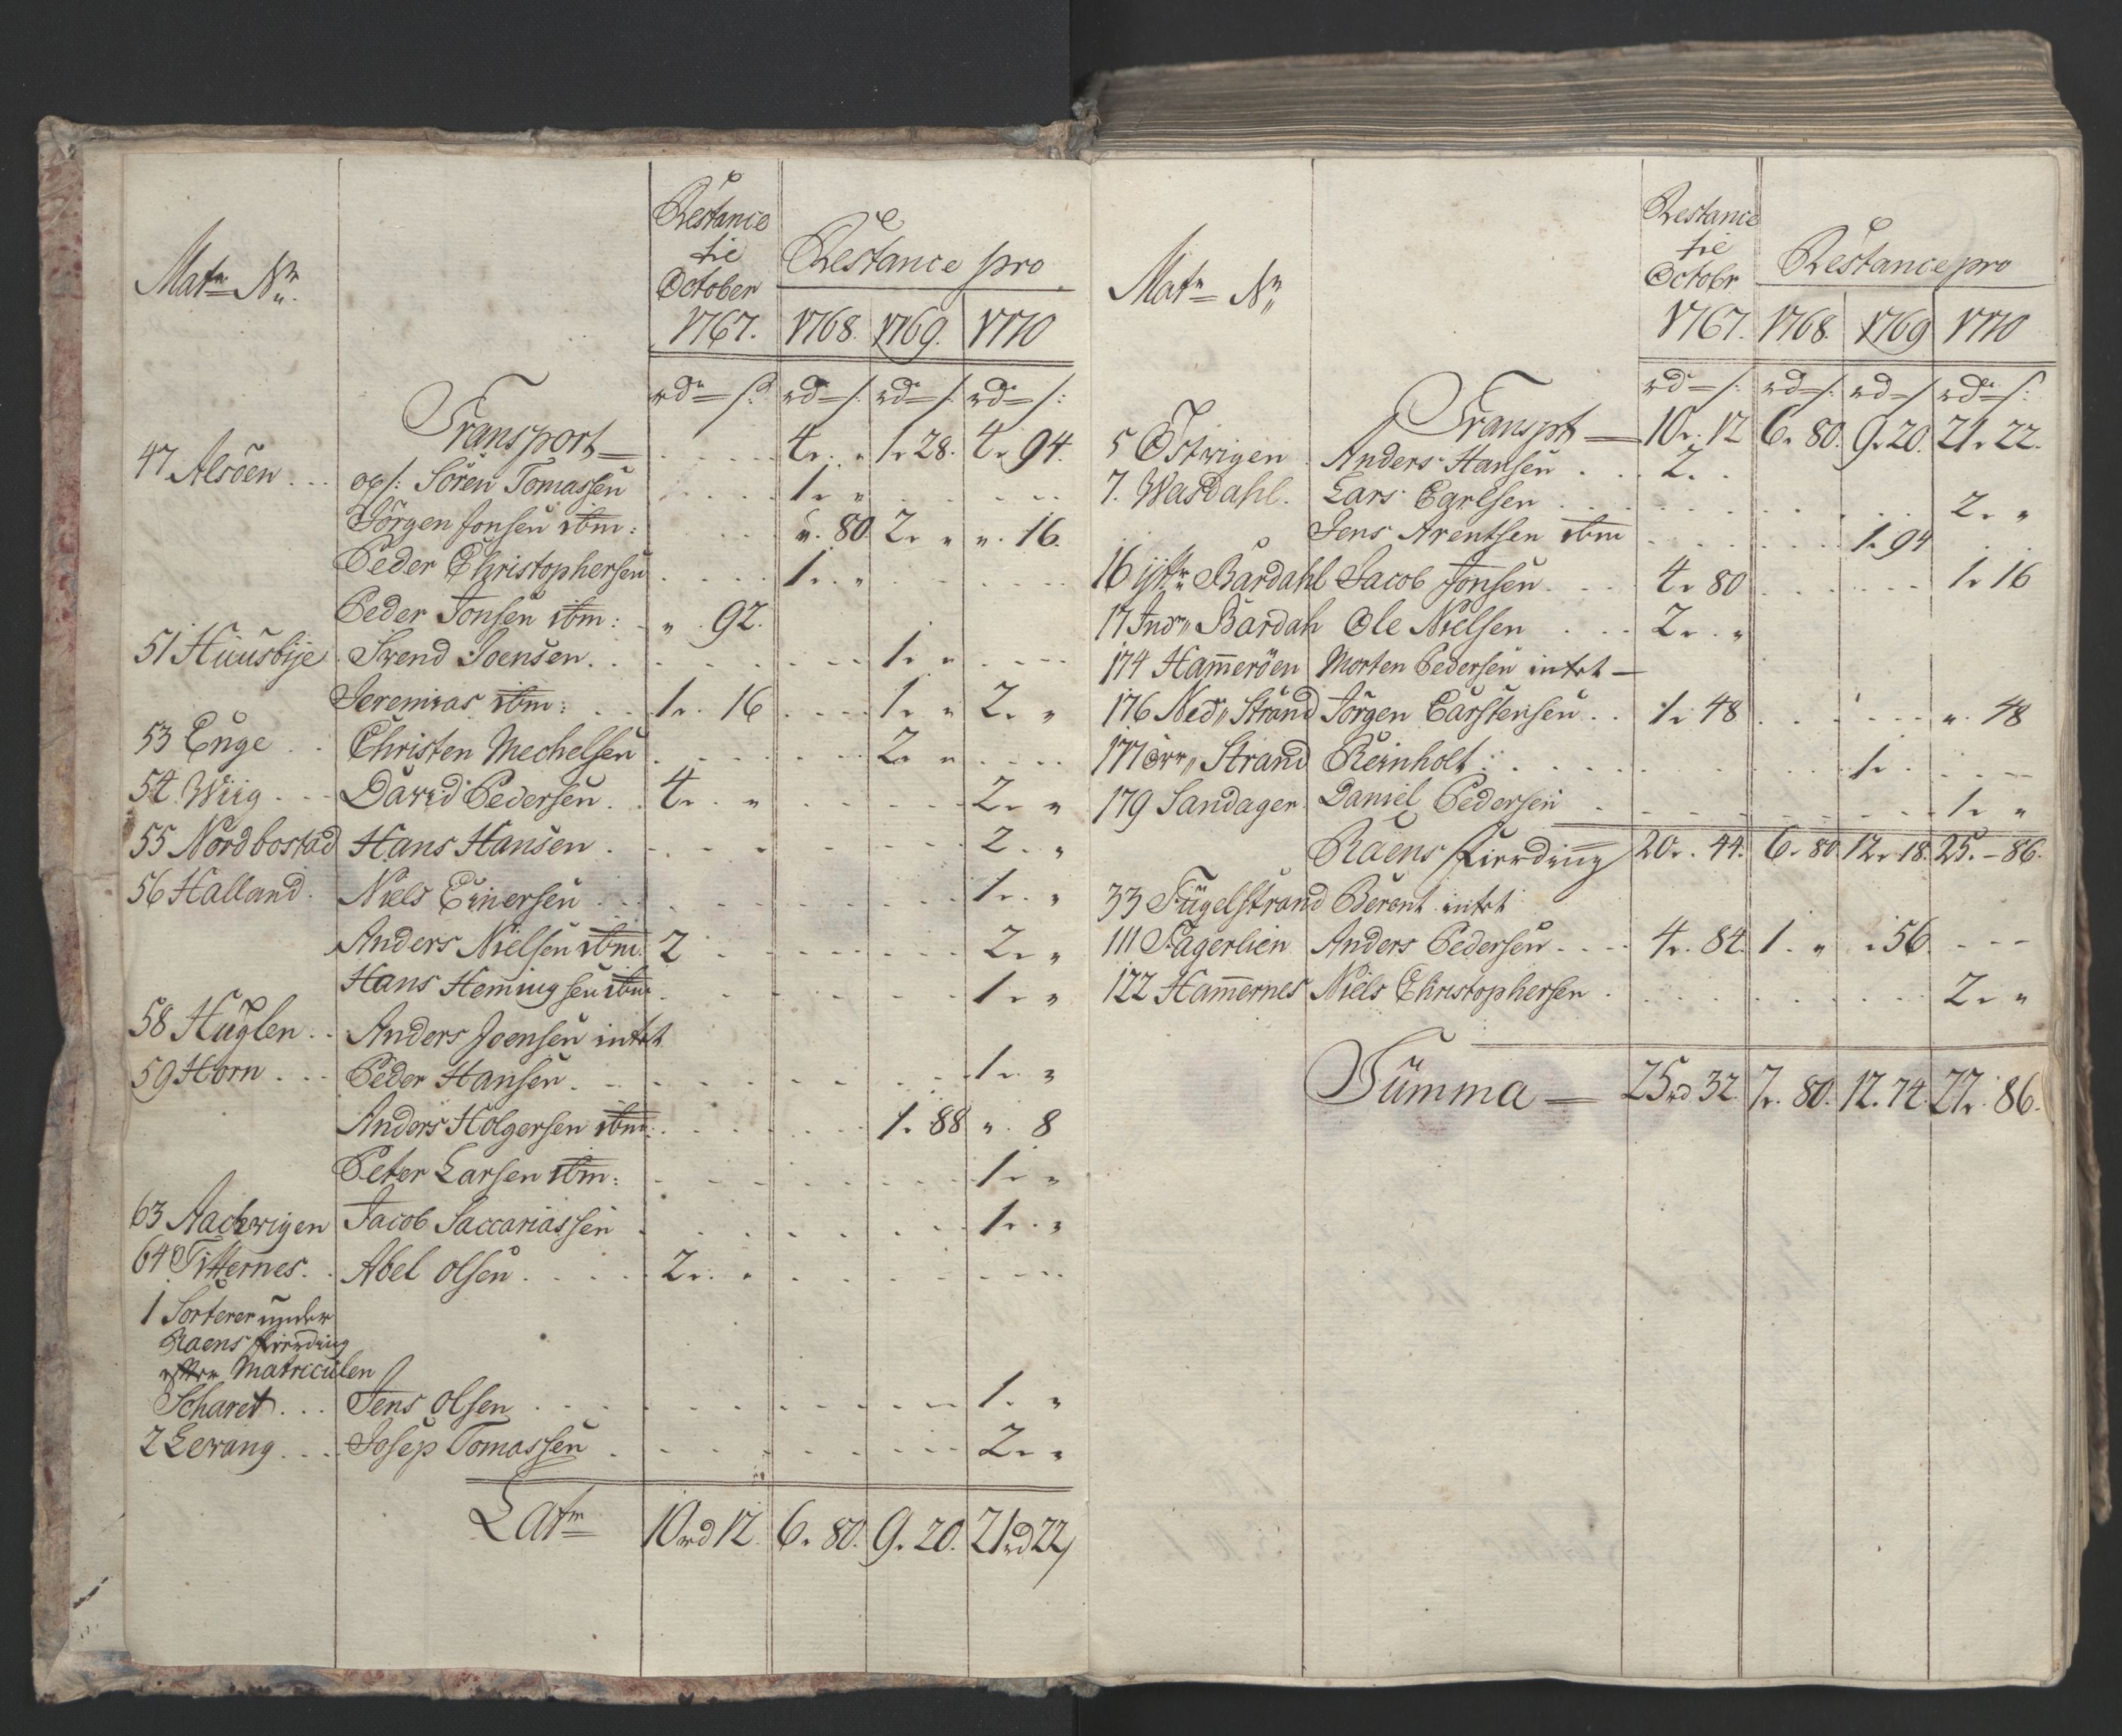 Matr. Nr.
Restance
tie
October
1767.
Restance pro
1768. 1769. 1770
rdr s. rd s. rd s. rd s.
Transport 4 " 1 28. 4 94.
47 Alsöen op s: Sören Tomassen 1 "
Jörgen Jonsen ibm: " 80 2 " " 16.
Peder Christophersen 1 "
Peder Jonsen ibm: " 92.
51 Huusbije Svend Joensen 1 "
Jeremias ibm: 1 16 1 " 2 "
53 Enge Christen Mechelsen 2 "
54 Wiig David Pedersen 4 " 2 "
55 Nordbostad Hans Hansen 2 "
56 Halland Niels Einersen 1 "
Anders Nielsen ibm. 2 2 "
Hans Hemingsen ibm 1 "
58 Huglen Anders Joensen intet
59 Horn Peder Hansen 1 "
Anders Holgersen ibm: 1. 88 " 8
Peter Larsen ibm: 1 "
63 Aachvigen Jacob Saccariassen 1 "
64 Titternes Abel olsen 2 "
1 Sorterer under
Raens fierding
efter Matriculen
Scharet Jens olsen 1 "
2 Levang Josep Tomassen 2 "
Latr 10rd 12. 6. 80. 9. 20. 21rd 22
Matr Nr
Restance
tie
Octobr
1767.
Restance pro
1768. 1769 1770
rdr s: rd s: rd s rdr s:
Transpt 10 12 6. 80. 9. 20. 21. 22.
5 Östvigen Anders Hansen 2.
7. Wasdahl Lars Carlsen 2 "
Jens Arentsen ibm 1. 94
16 ijttr Bardahl Jacob Jonsen 4 80 1 16
17 Indr Bardah Ole Nielsen 2 "
174 Hammeröen Morten Pedersen intet
176 Nedr Strand Jörgen Carstensen 1 48 " 48
177 övr Strand Reinholt 1
179 Sandager Daniel Pedersen 1 "
Raens fierding 20. 44. 6. 80 12. 18. 25. 86.
33 Fugelstrand Berent intet
111 Fagerlien Anders Pedersen 4. 84. 1. " " 56
122 Hammernes Niels Christophersen 2 "
Summa 25rd 32. 7. 80. 12. 74. 27. 86.